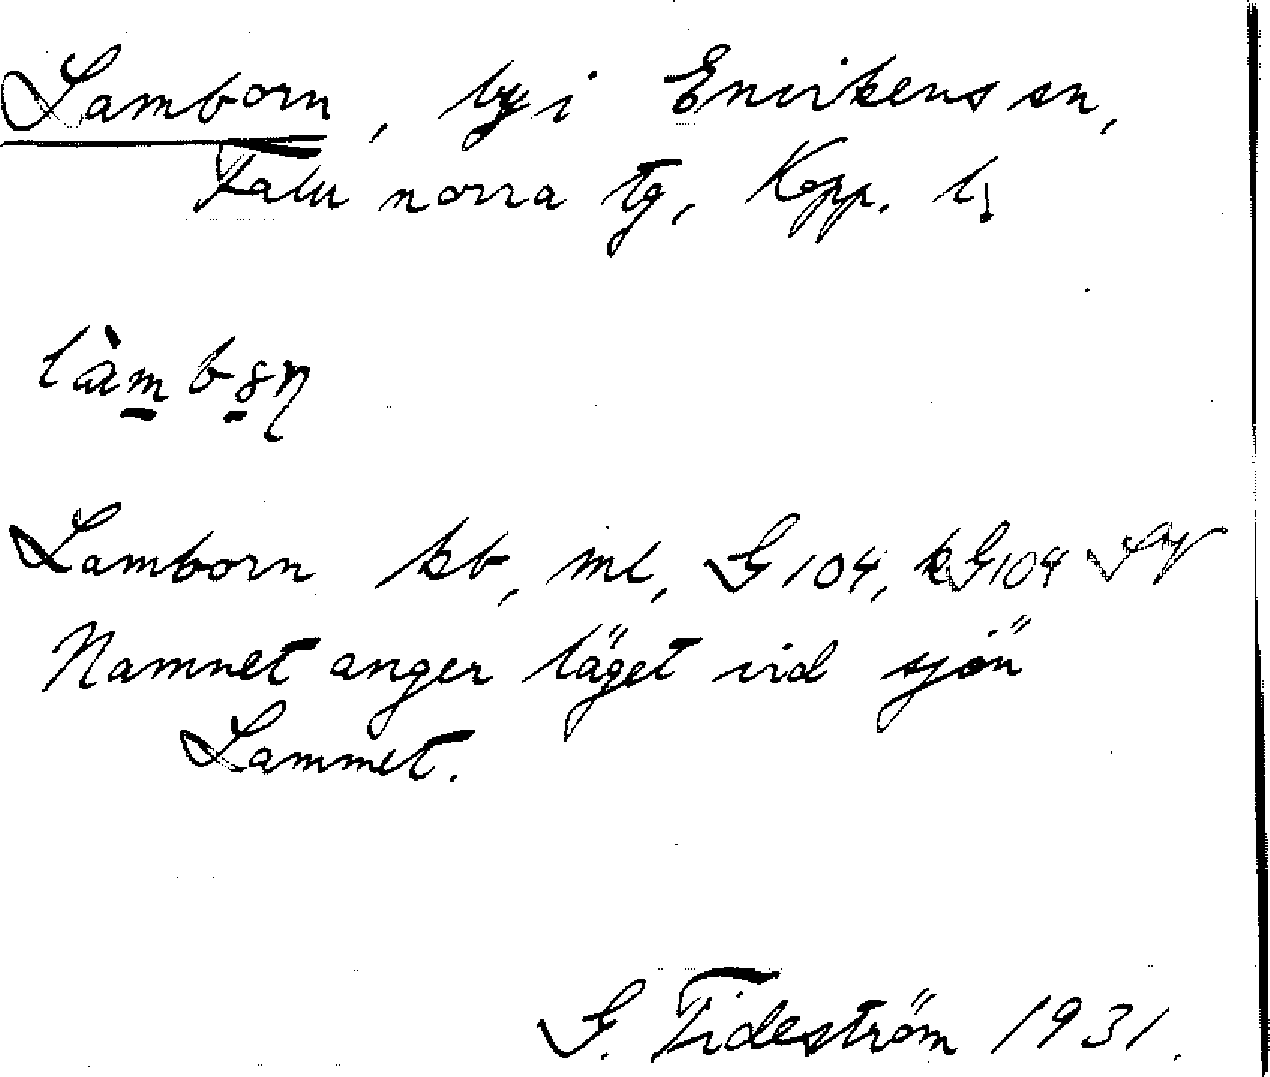 Lamborn, by i Envikens sn,
Falu norra tg, Kopp. l.
Lamborn kb, ml, G 104, kG 104 SV
Namnet anger läget vid sjön
Lammet.
G. Tideström 1931.